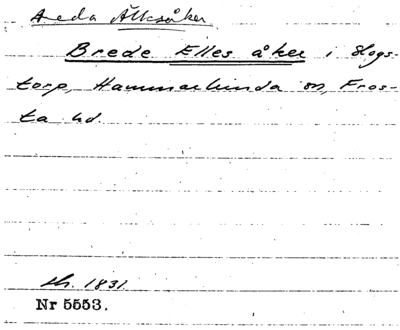 Breda Älleåker
Brede Elles åker i Hogs-
torp, Hammarlunda sn, Fros-
ta hd.
Sk. 1831.
Nr 5553.